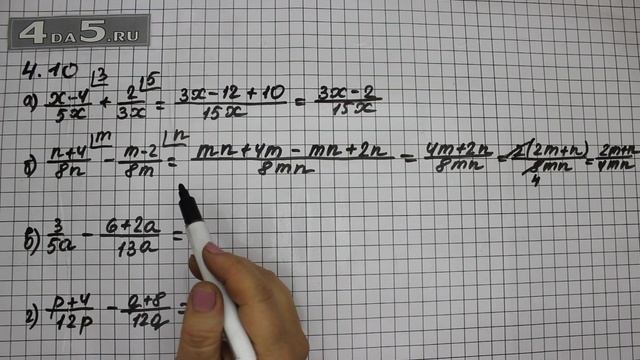 4DA5.RU
4.10
а) x-4/5x ⌊3 + 2/3x ⌊5 = 3x-12+10/15x = 3x-2/15x
б) n+4/8n ⌊m - m-2/8m ⌊n = mn+4m-mn+2n/8mn = 4m+2n/8mn = 2(2m+n)/8mn 4 = 2m+n/4mn
в) 3/5a - 6+2a/13a =
г) p+4/12p - q+8/12q =